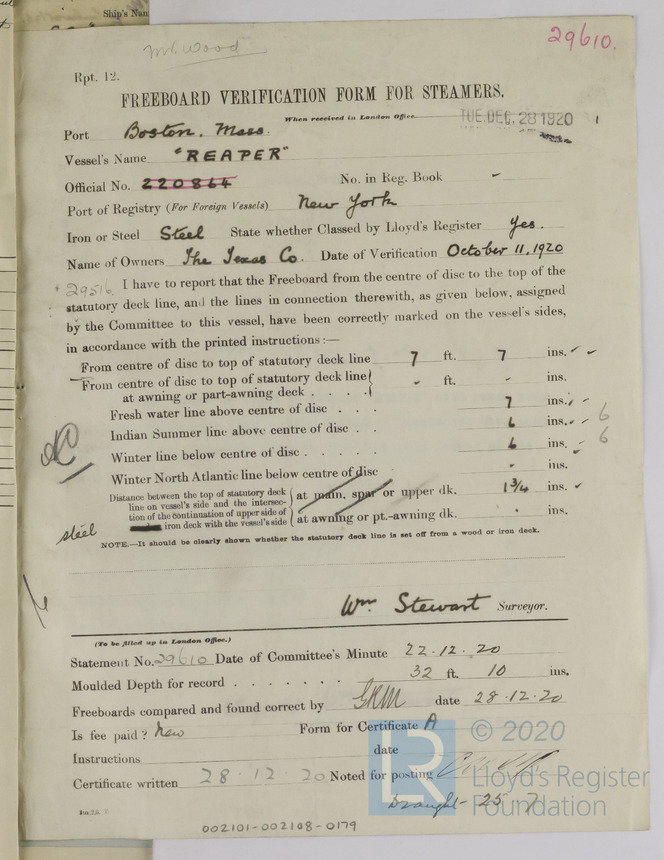 Ship's Nam
Mr. Wood
29610.
Rpt. 12.
FREEBOARD VERIFICATION FORM FOR STEAMERS.
When received in London Office. TUE. DEC. 28 1920
Port Boston. Mass.
Vessel's Name "REAPER"
Official No. 220864 No. in Reg. Book -
Port of Registry (For Foreign Vessels) New York
Iron or Steel Steel State whether Classed by Lloyd's Register Yes.
Name of Owners The Texas Co. Date of Verification October 11, 1920
29516 I have to report that the Freeboard from the centre of disc to the top of the
statutory deck line, and the lines in connection therewith, as given below, assigned
by the Committee to this vessel, have been correctly marked on the vessel's sides,
in accordance with the printed instructions :—
From centre of disc to top of statutory deck line 7 ft. 7 ins.
From centre of disc to top of statutory deck line - ft. - ins.
at awning or part-awning deck . . . .
Fresh water line above centre of disc . . . 7 ins.
Indian Summer line above centre of disc . . 6 ins. 6
Winter line below centre of disc . . . . . 6 ins. 6
Winter North Atlantic line below centre of disc - ins.
Distance between the top of statutory deck
line on vessel's side and the intersec-
tion of the continuation of upper side of
steel iron deck with the vessel's side
at main, spar or upper dk. 1 3/4 ins.
at awning or pt.-awning dk. . ins.
NOTE.—It should be clearly shown whether the statutory deck line is set off from a wood or iron deck.
Wm. Stewart Surveyor.
(To be filled up in London Office.)
Statement No. 29610 Date of Committee's Minute 22.12.20
Moulded Depth for record . . . . . . . 32 ft. 10 ins.
Freeboards compared and found correct by date 28.12.20
Is fee paid ? New Form for Certificate A
Instructions date
Certificate written 28.12.20 Noted for posting
Draught - 25 7
002101-002108-0179
LR © 2020
Lloyd's Register
Foundation